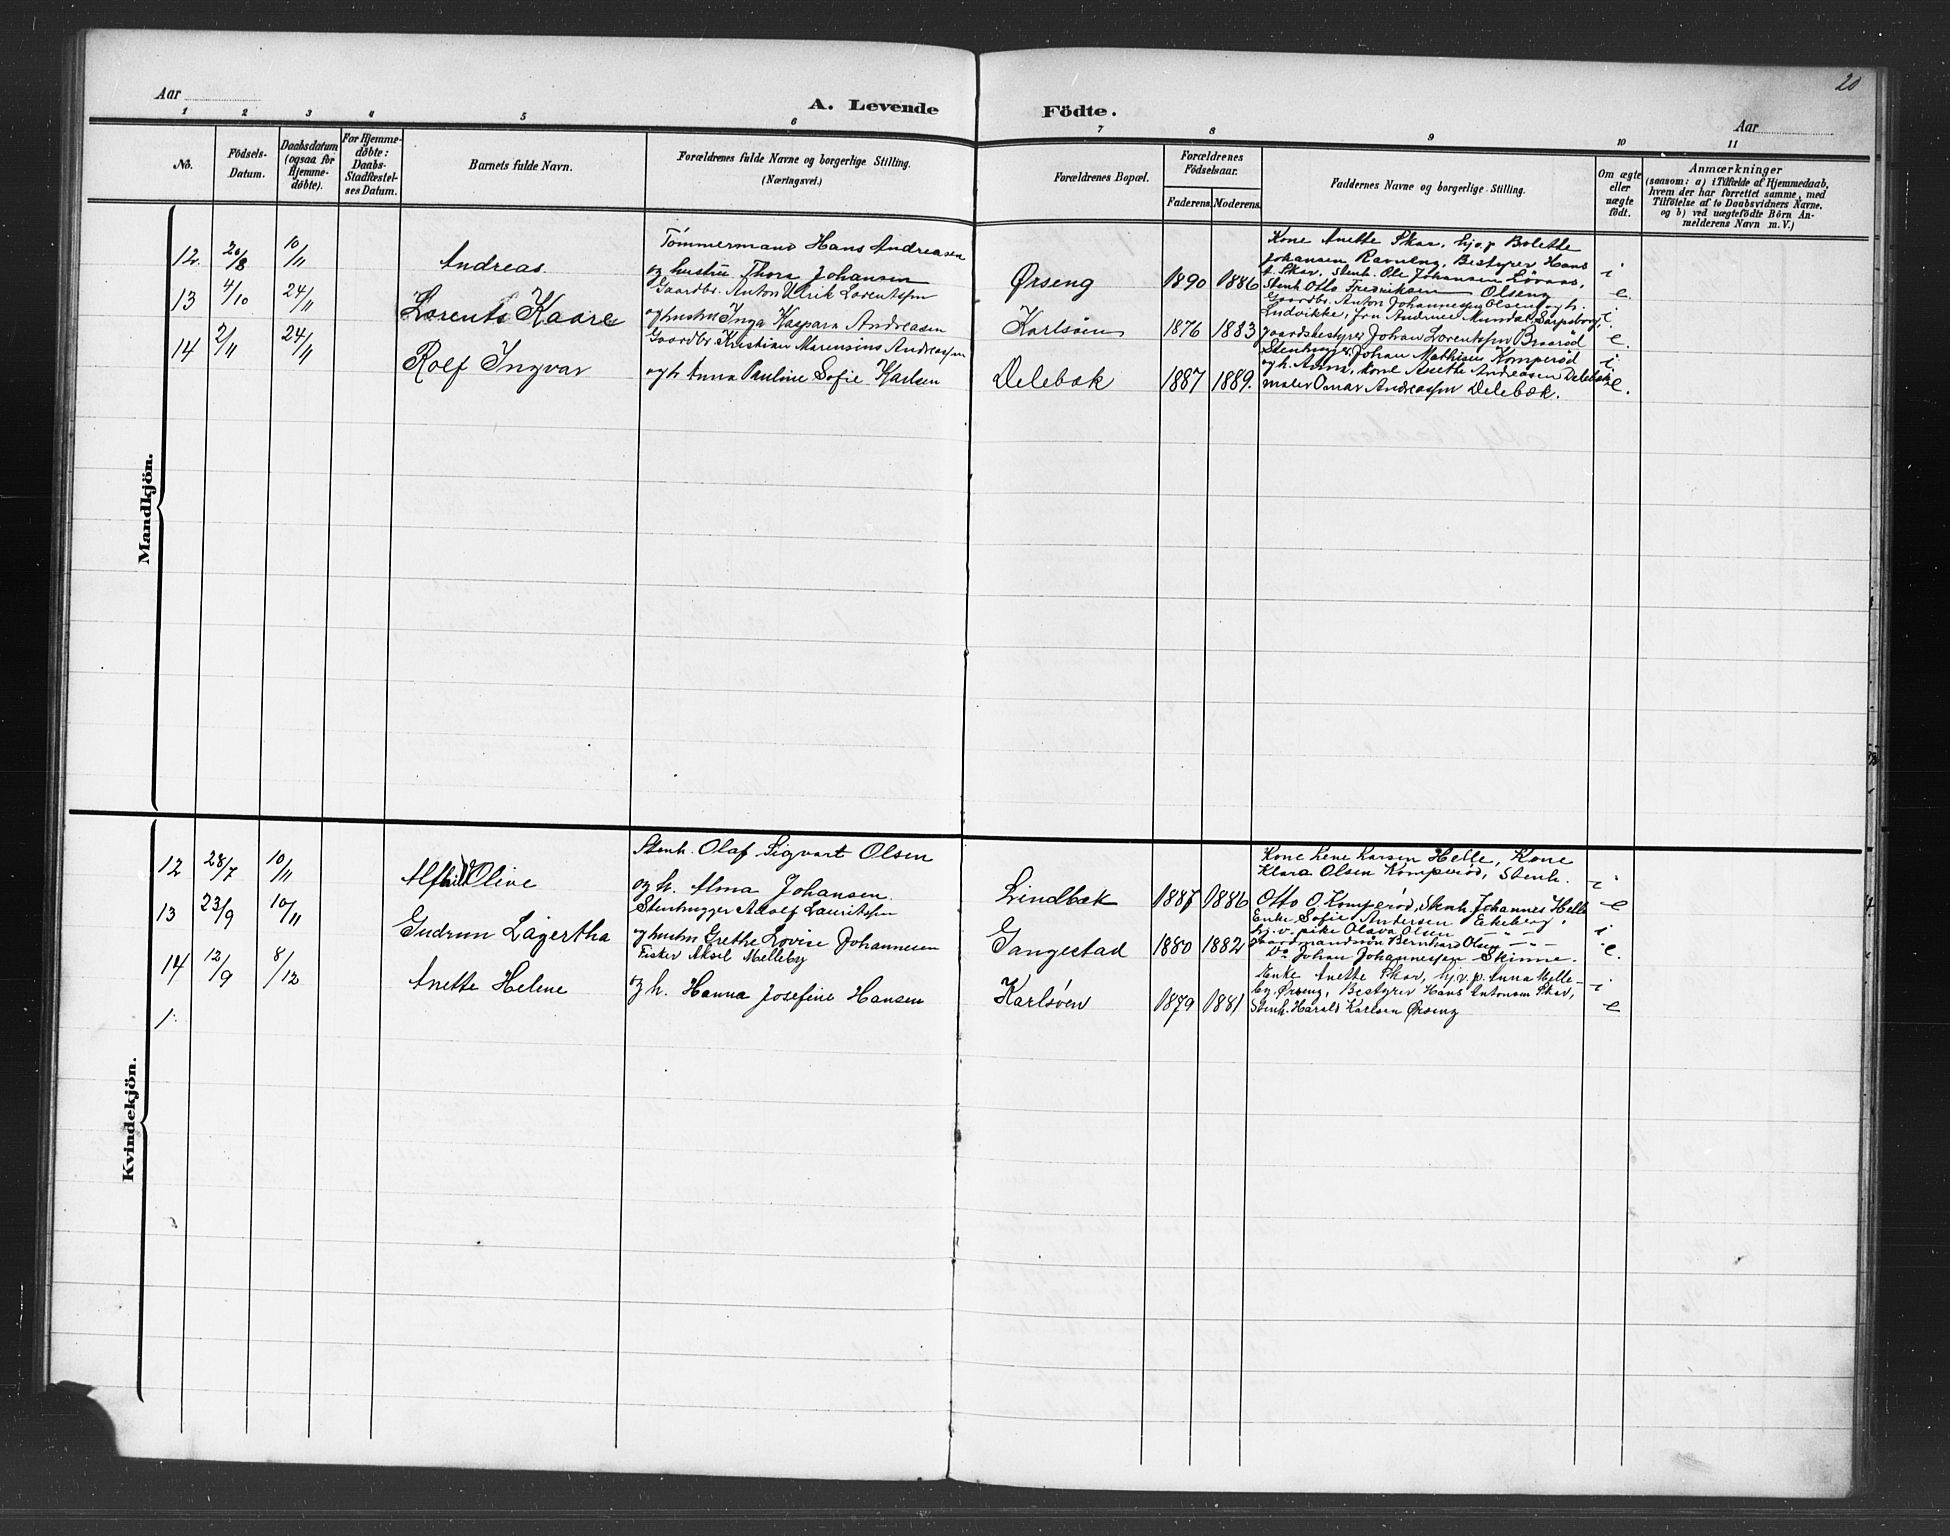 20
Aar
A. Levende Födte.
Aar
1 2 3 4 5 6 7 8 9 10 11
No.
Födsels-Datum.
Daabsdatum (ogsaa for Hjemme-døbte).
For Hjemme-døbte: Daabs-Stadfæstel-ses Datum.
Barnets fulde Navn.
Forældrenes fulde Navne og borgerlige Stilling.
(Næringsvei.)
Forældrenes Bopæl.
Forældrenes Födselsaar.
Faderens. Moderens.
Faddernes Navne og borgerlige Stilling.
Om ægte eller uægte födt.
Anmærkninger
(saasom: a) i Tilfælde af Hjemmedaab,
hvem der har forrettet samme, med
Tilföielse af to Daabsvidners Navne,
og b) ved uægtefödte Börn An-
melderens Navn m. V.)
Mandkjön.
12. 20/8 10/11 Andreas.
Tömmermand Hans Andreasen
og hustru Thora Johansen
Ørseng 1890 1886
Kone Anette Skar, hjv.p Bolette
Johansen Ravneng, Bestyrer Hans
A. Skar, Stenh. Ole Johansen Løvaas,
Stenh Otto Fredriksen Olseng
i e.
13 4/10 24/11 Lorents Kaare
Gaardbr. Anton Ulrik Lorentssen
og hustru Inga Kaspara Andreasen
Karlsöen 1876 1883
Gaardbr. Anton Johannessen Olsen og h.
Ludvikke, fru Andrine Mundal, Sarpsborg,
gaardsbestyrer Johan Lorentssen Braaröd
i e.
14 2/11 24/11 Rolf Ingvar
Gaardbr. Kristian Marensius Andreassen
og h. Anna Pauline Sofie Karlsen
Delebæk 1887 1889.
Stenhugger Johan Mathisen Komperöd
og h. Anna, kone Anette Andreasen Delebæk
maler Omar Andreassen Delebæk.
i e.
Kvindekjön.
12 28/7 10/11 Alfhild Olive
Stenh. Olaf Sigvart Olsen
og h. Alma Johansen.
Lindbæk 1887 1886
Kone Lene Larsen Helle, Kone
Klara Olsen Komperöd, Stenh.
Otto O. Komperöd, Stenh. Johannes Helle
i e
13 23/9 10/11 Gudrun Lagertha
Stenhugger Adolf Lauritssen
og hustru Grethe Lovise Johannesen
Gangestad 1880 1882
Enke Sofie Andersen Ekeberg,
hj.v. pike Olava Olsen — " —
gaardmandssön Bernhard Olsen — " —
Do Johan Johannessen Skinne.
i e.
14 12/9 8/12 Anette Helene
Fisker Aksel Melleby
og h. Hanna Josefine Hansen
Karlsöen 1879 1881
Enke Anette Skar, hj.v.p. Anna Melle-
by Ørseng, Bestyrer Hans Antonsen Skar,
Stenh. Harald Karlsen Ørseng
i e
1.